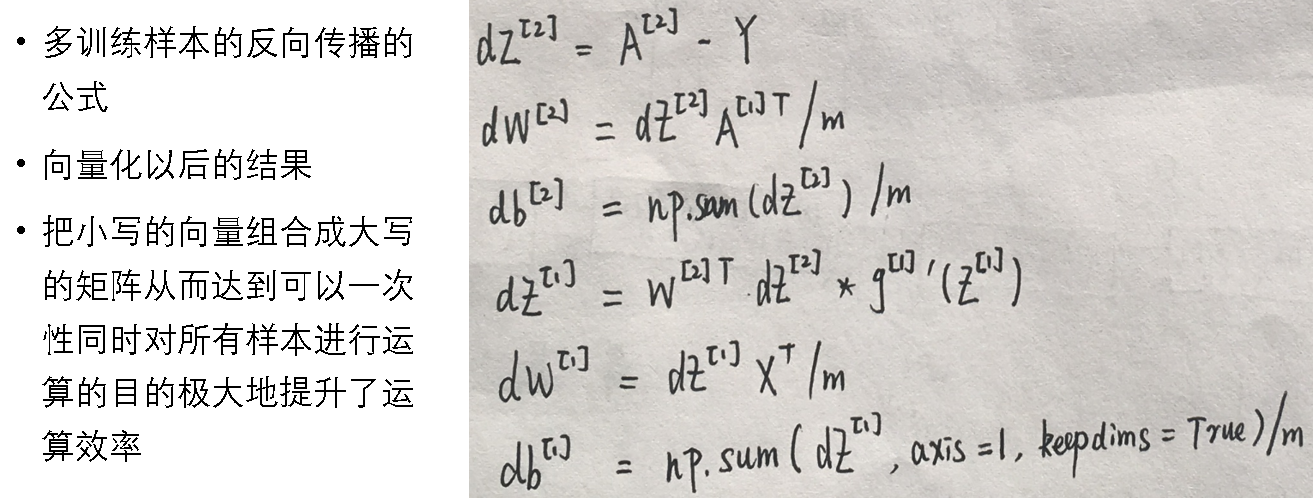 • 多训练样本的反向传播的
公式
• 向量化以后的结果
• 把小写的向量组合成大写
的矩阵从而达到可以一次
性同时对所有样本进行运
算的目的极大地提升了运
算效率
dZ^[2] = A^[2] - Y
dW^[2] = dZ^[2] A^[1]T /m
db^[2] = np.sum(dZ^[2]) /m
dZ^[1] = W^[2]T dZ^[2] * g^[1]'(Z^[1])
dW^[1] = dZ^[1] X^T /m
db^[1] = np.sum(dZ^[1], axis=1, keepdims=True)/m